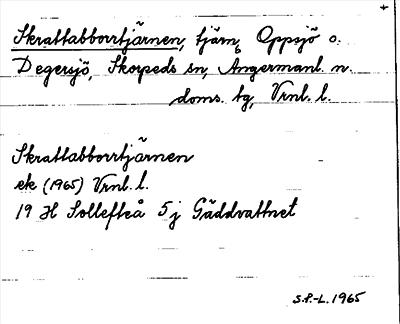 Skrattabborrtjärnen, tjärn, Oppsjö o.
Degersjö, Skorpeds sn, Ångermanl. n.
doms. tg, Vrnl. l.
Skrattabborrtjärnen
ek (1965) Vrnl. l.
19 H Sollefteå 5 j Gäddvattnet
S.P.-L. 1965